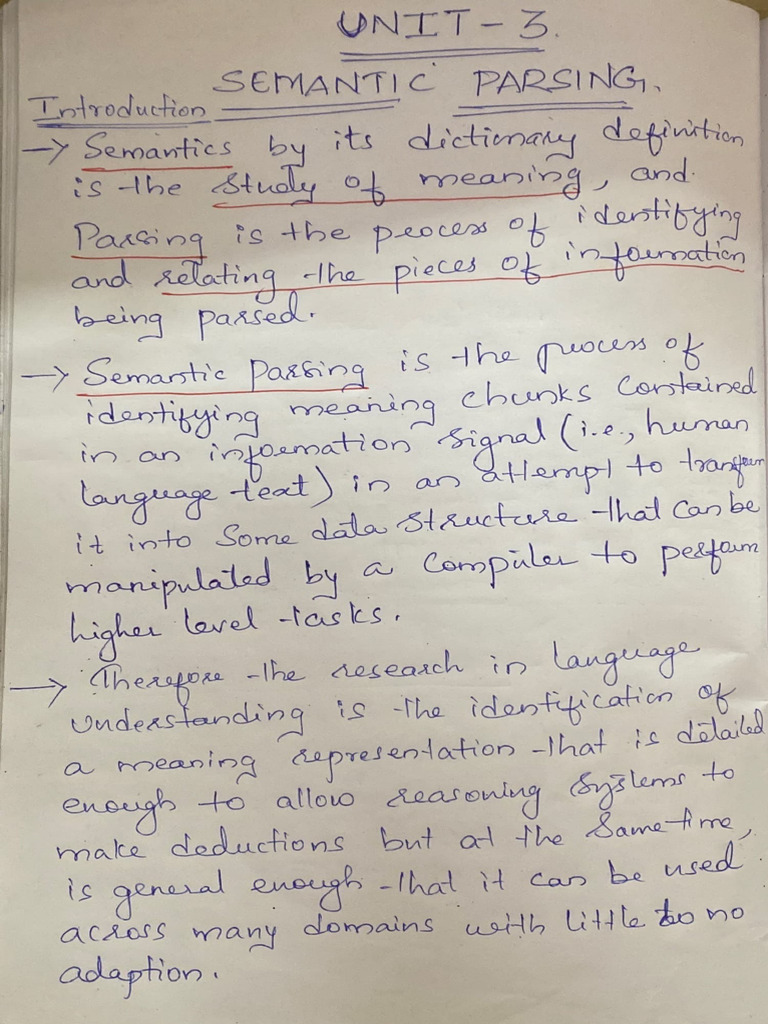 UNIT - 3.
SEMANTIC PARSING.
Introduction
→ Semantics by its dictionary definition
is the study of meaning, and
Parsing is the process of identifying
and relating the pieces of information
being parsed.
→ Semantic Parsing is the process of
identifying meaning chunks contained
in an information signal (i.e., human
language text) in an attempt to transform
it into some data structure that can be
manipulated by a computer to perform
higher level tasks.
→ Therefore the research in language
understanding is the identification of
a meaning representation that is detailed
enough to allow reasoning systems to
make deductions but at the same time,
is general enough that it can be used
across many domains with little to no
adaption.